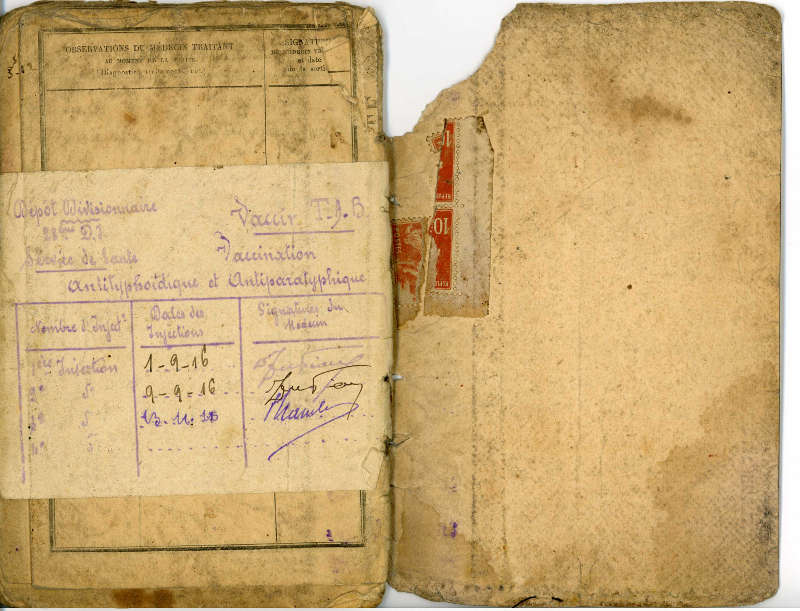 OBSERVATIONS DU MÉDECIN TRAITANT
AU MOMENT DE LA SORTIE
(Diagnostic, traitement, etc.)
SIGNATURE
et date
de la sortie
Dépôt Divisionnaire
28ème D.I.
Service de Santé
Vaccin T.A.B.
Vaccination
Antityphoïdique et Antiparatyphique
Nombre d'Injectˢ
Dates des Injections
Signatures du Médecin
1ère Injection
1-9-16
2e
9-9-16
13-11-
10